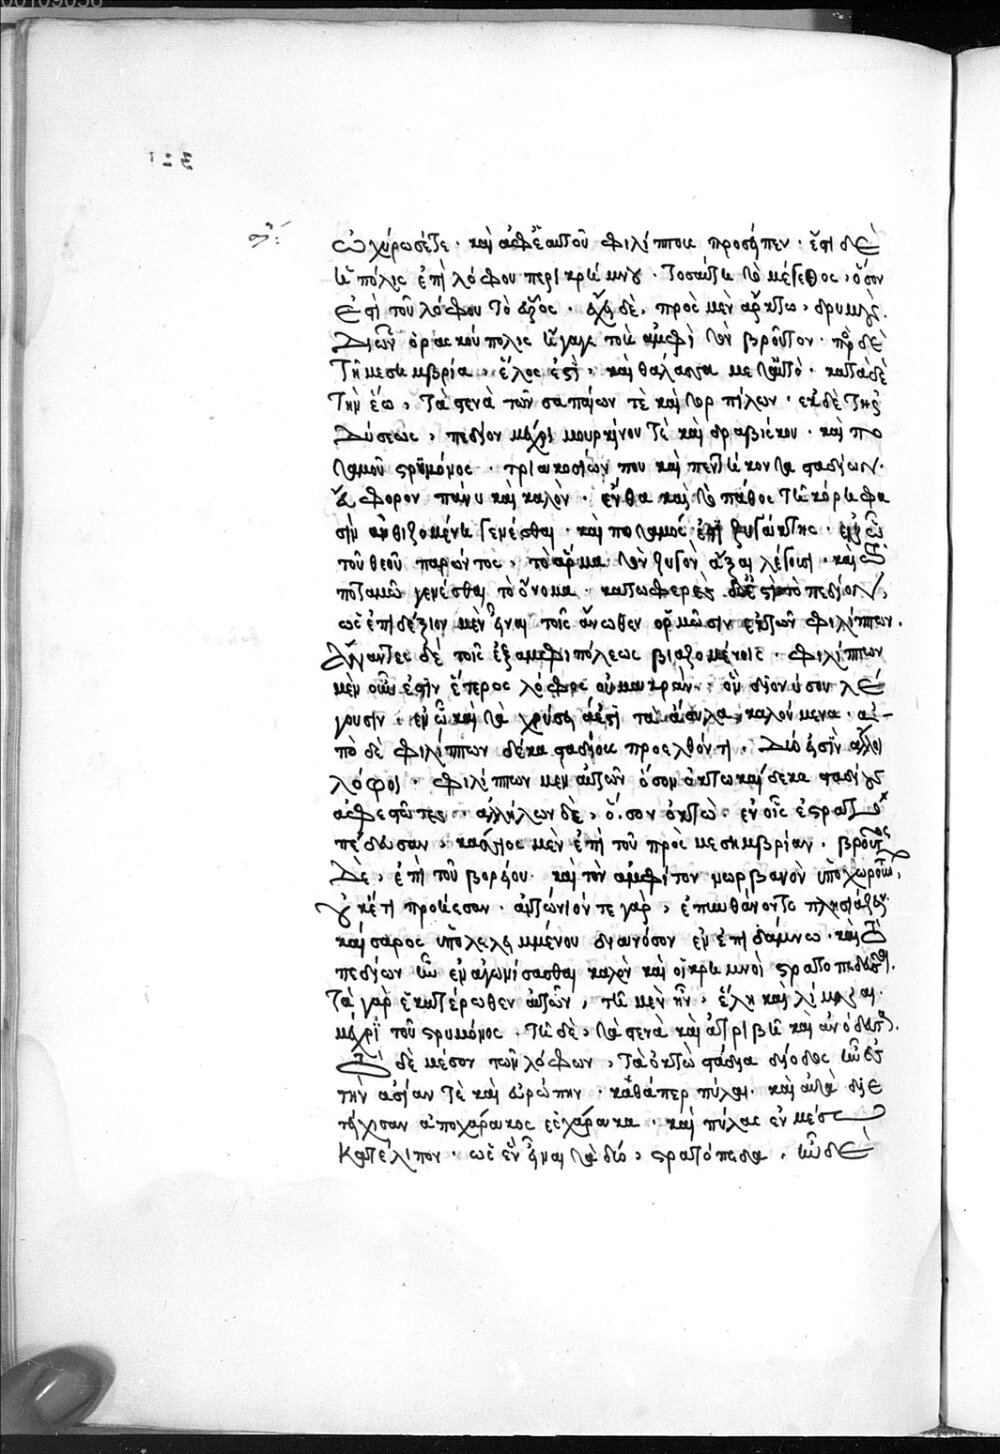 ὠχύρωσέτε· καὶ ἀφ' ἑαυτοῦ φιλίππους προσεῖπεν· ἔστι δὲ
ἡ πόλις ἐπὶ λόφου περικρήμνου· τοσαύτη τὸ μέγεθος, ὅσον
ἐστὶ τοῦ λόφου τὸ εὖρος· ἔχει δὲ, πρὸς μὲν ἄρκτω, δρυμοὺς.
δι' ὧν ὁ ῥασκούπολις ἤγαγε τοὺς ἀμφὶ τὸν βροῦτον· πρὸς δὲ
τῆ μεσημβρία, ἕλος ἐστὶ, καὶ θάλασσα μετ' αὐτὸ· κατὰ δὲ
τὴν ἕω, τὰ στενὰ τῶν σαπαίων τὲ καὶ τορπίλων· ἐκ δὲ τῆς
δύσεως, πεδίον μέχρι μουρκίνου τὲ καὶ δραβίσκου· καὶ πο
ταμοῦ στρυμόνος· τριακοσίων που καὶ πεντήκοντα σταδίων·
εὔφορον πάνυ καὶ καλὸν· ἔνθα καὶ τὸ πάθος τῆ κόρη φα
σὶν ἀνθιζομένη γενέσθαι· καὶ ποταμός ἐστι ζυγάκτης· ἐν ᾧ
τοῦ θεοῦ παρῶντος, τὸ ἅρμα τὸν ζυγὸν ἄξαι λέγουσι· καὶ τῶ
ποταμῶ γενέσθαι τὸ ὄνομα· κατωφερὲς δέ ἐστι τὸ πεδίον,
ὡς ἐπιδέξιον μὲν εἶναι τοῖς ἄνωθεν ὁρμῶσιν ἐκ τῶν φιλίππων.
ἄναντες δὲ τοῖς ἐξ ἀμφιπόλεως βιαζομένοις· φιλίππων
μὲν οὖν ἐστὶν ἕτερος λόφος οὐ μακρὰν· ὃν διονύσου λέ
γουσιν· ἐν ᾧ καὶ τὰ χρύσειά ἐστι τὰ ἄσυλα καλούμενα· ἀ–
πὸ δὲ φιλίππων δέκα σταδίους προελθόντι· δύο εἰσὶν ἄλλοι
λόφοι· φιλίππων μὲν αὐτῶν ὅσον ὀκτωκαίδεκα σταδίους
ἀφεστῶτες· ἀλλήλων δὲ, ὅσον ὀκτὼ· ἐν οἷς ἐστρατο
πέδευσαν, κάσσιος μὲν ἐπὶ τοῦ πρὸς μεσημβρίαν· βροῦτος
δὲ, ἐπὶ τοῦ βορείου· καὶ τὸν ἀμφὶ τον νωρβανὸν ὑποχωροῦντα,
οὐκέτι προήεσαν· ἀντώνιόν τε γὰρ, ἐπυνθάνοντο πλησιάζειν.
καίσαρος ὑπολελειμμένου διανόσον ἐν ἐπιδάμνω· καὶ τὸ
πεδίων ἦν ἐναγωνίσασθαι καλὸν καὶ οἱ κρημνοὶ στρατοπεδεῦσαι.
τὰ γὰρ ἑκατέρωθεν αὐτῶν, τῆ μὲν ἦν, ἕλη καὶ λίμναι·
μέχρι τοῦ στρυμόνος· τῆ δὲ, τὰ στενὰ καὶ ἀτριβῆ καὶ ἀνόδευτα.
τὸ δὲ μέσον τῶν λόφων, τὰ ὀκτὼ στάδια δίοδος ἦν ἐς
τὴν ἀσίαν τὲ καὶ εὐρώπην· καθάπερ πύλαι· καὶ αὐτὰ διε
τείχισαν ἀπὸ χάρακος ἐς χάρακα· καὶ πύλας ἐν μέσω
κατέλιπον· ὡς ἓν εἶναι τὰ δύο, στρατόπεδα· ἦν δὲ